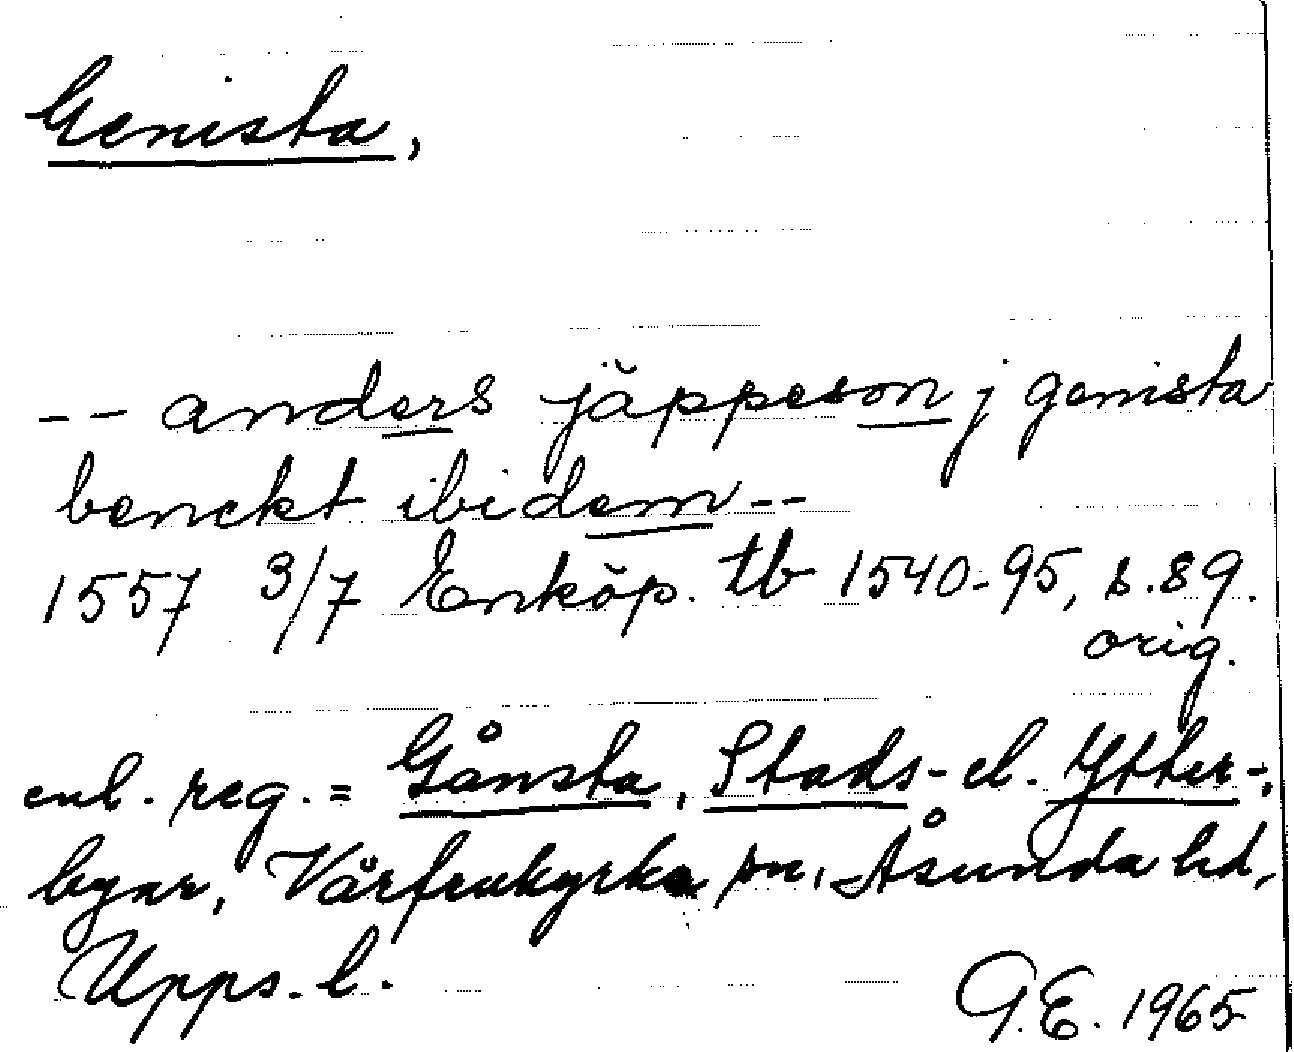 Genista,
-- anders jäppeson j genista
benckt ibidem --
1557 3/7 Enköp. tb 1540-95, s. 89.
orig.
enl. reg. = Gånsta, Stads- el. Ytter-,
byar, Vårfrukyrka sn, Åsunda hd,
Upps. l.
G.E. 1965